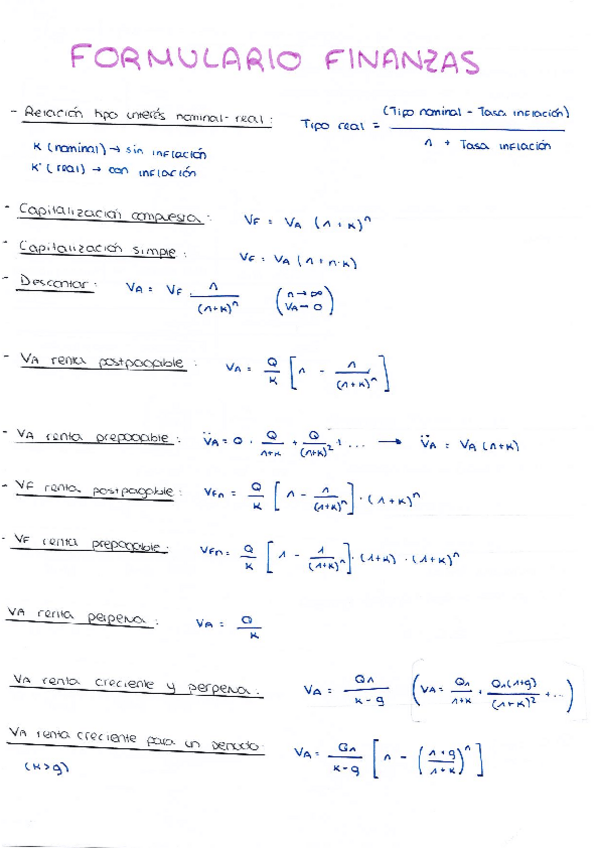 FORMULARIO FINANZAS
- Relación tipo interés nominal-real: Tipo real = (Tipo nominal - Tasa inflación) / 1 + Tasa inflación
K (nominal) → sin inflación
K' (real) → con inflación
- Capitalización compuesta: VF = VA (1+K)^n
- Capitalización simple: VF = VA (1+n·K)
- Descontar: VA = VF · 1/(1+K)^n (n→∞ VA→0)
- VA renta postpagable: VA = Q/K [1 - 1/(1+K)^n]
- VA renta prepagable: V̈A = Q + Q/(1+K) + Q/(1+K)^2 + ... → V̈A = VA (1+K)
- VF renta postpagable: VFn = Q/K [1 - 1/(1+K)^n] · (1+K)^n
- VF renta prepagable: VFn = Q/K [1 - 1/(1+K)^n] · (1+K) · (1+K)^n
VA renta perpetua: VA = Q/K
VA renta creciente y perpetua: VA = Q1/(K-g) (VA = Q1/(1+K) + Q1(1+g)/(1+K)^2 + ...)
VA renta creciente para un periodo: VA = Q1/(K-g) [1 - ((1+g)/(1+K))^n]
(K>g)